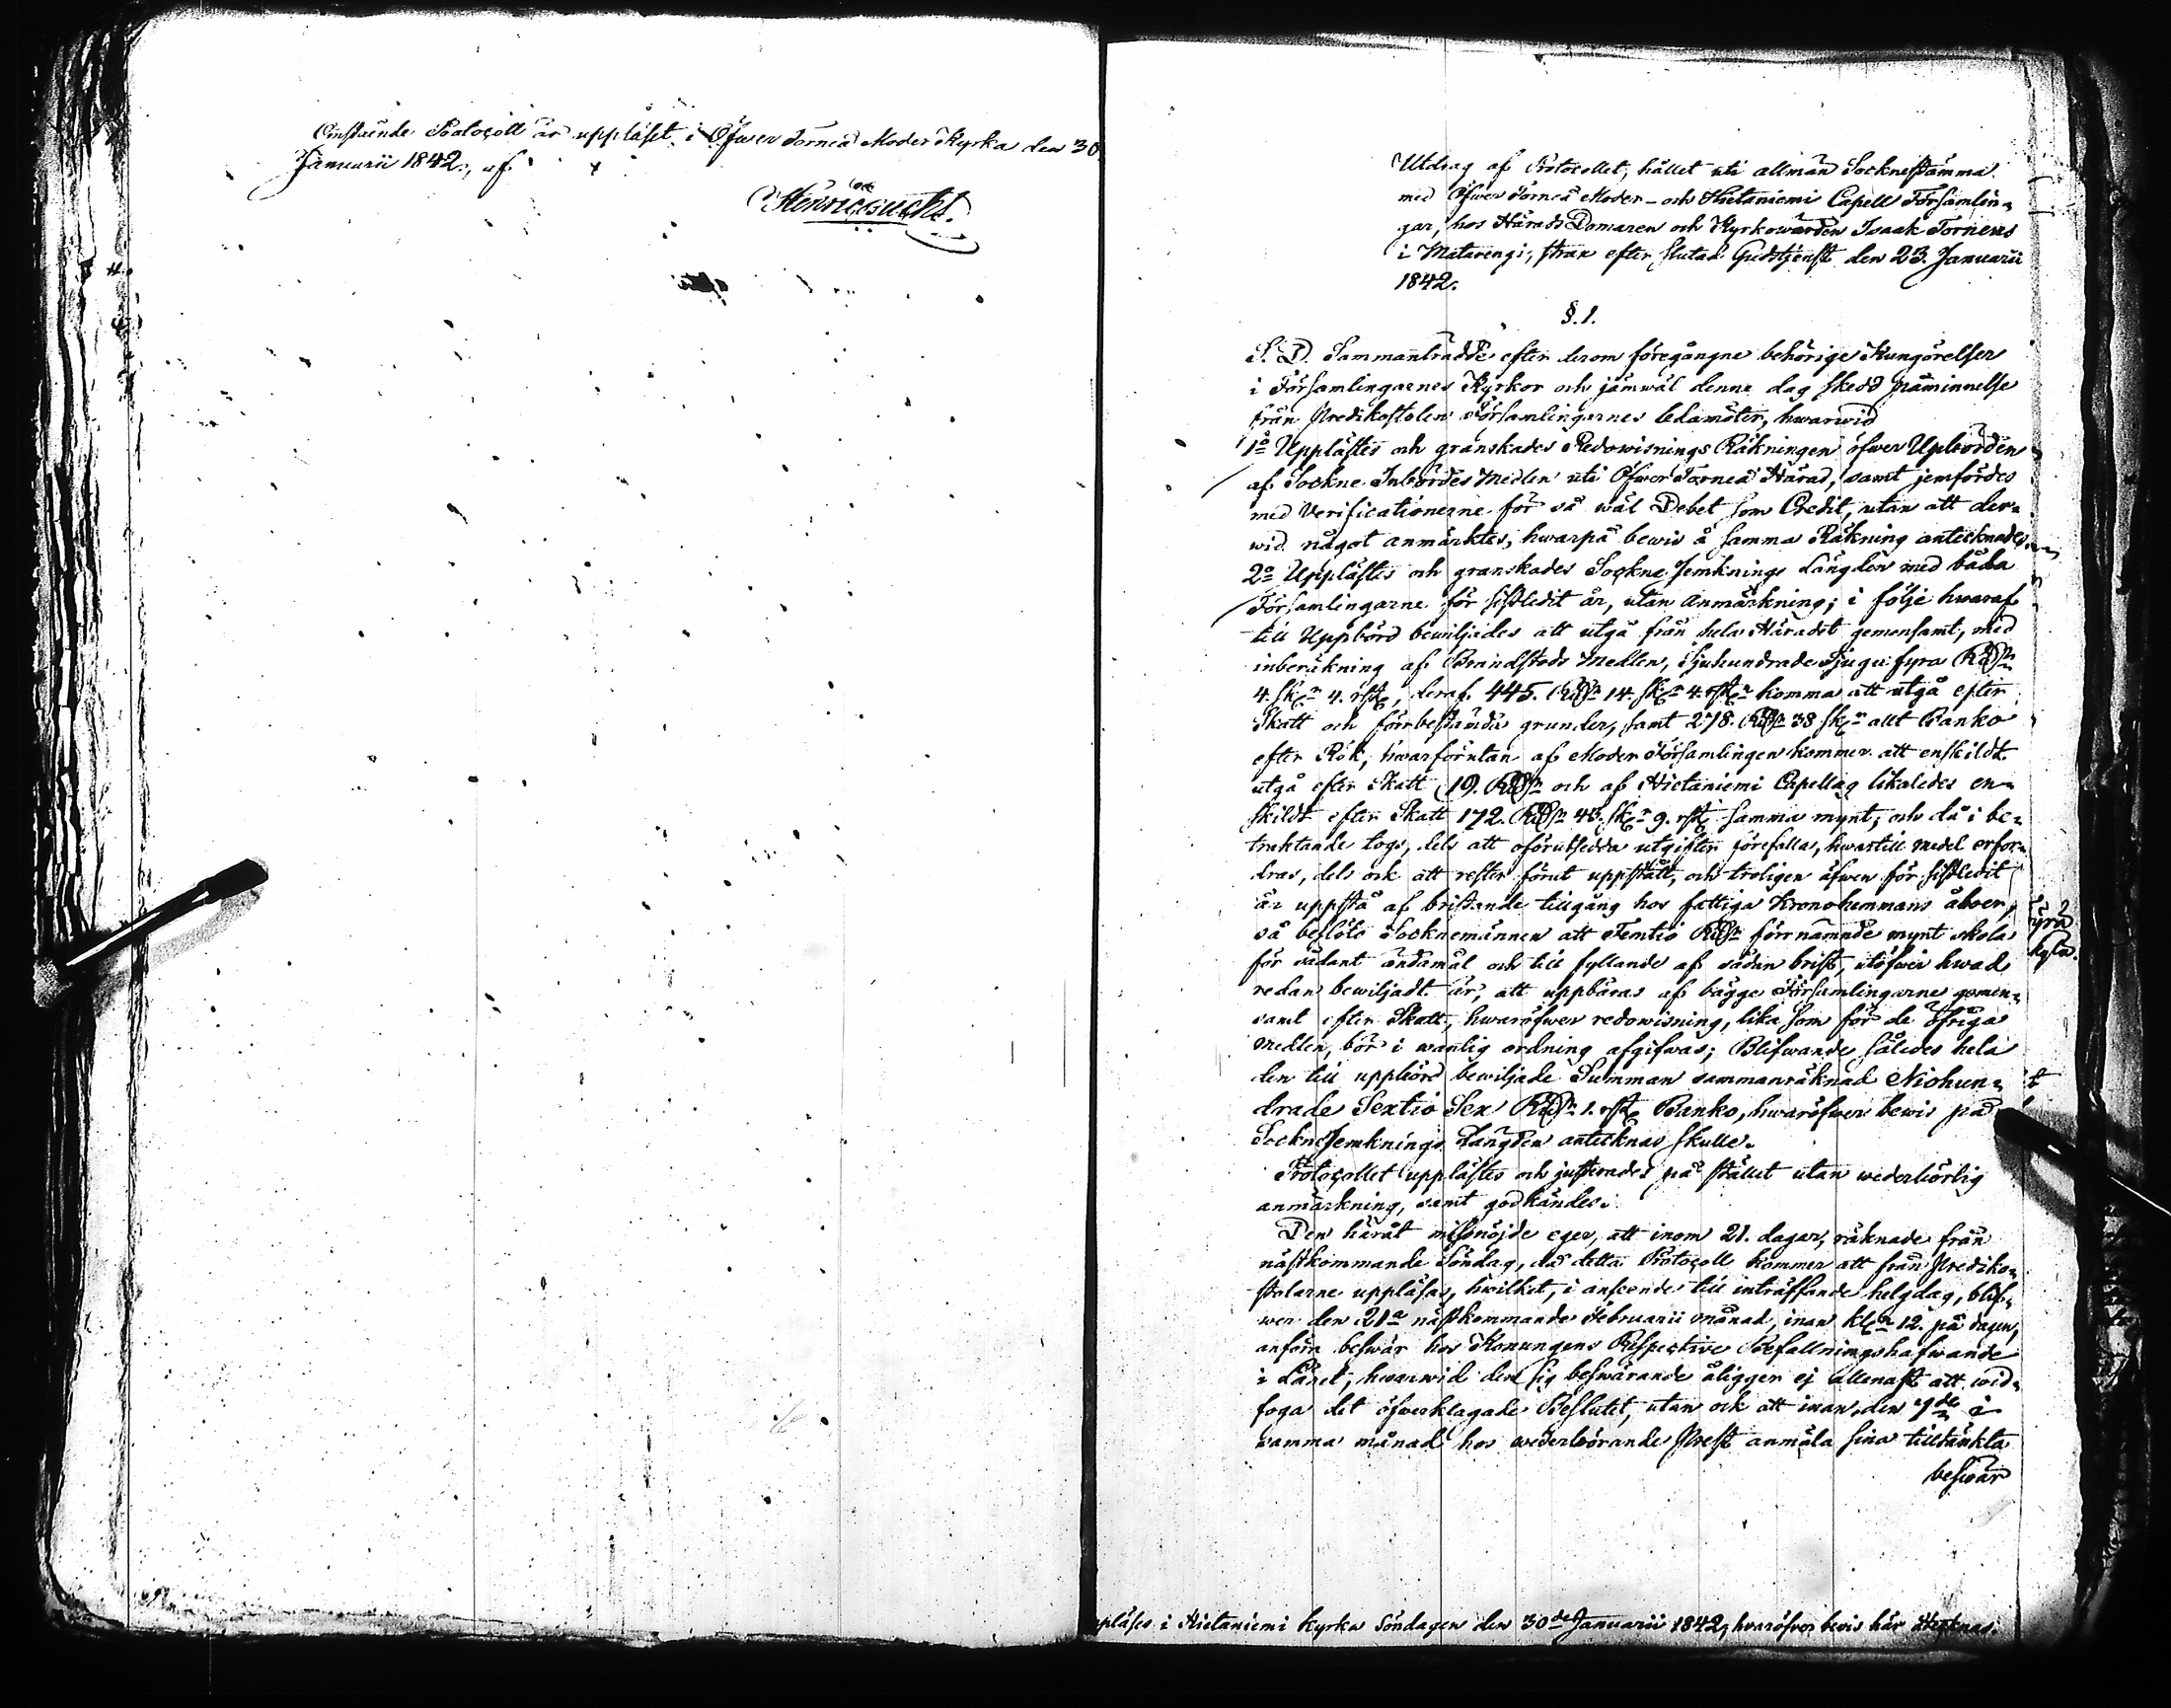 Omstående Protocoll är uppläset i Öfwer Torneå Moder Kyrka den 30
Januarii 1842, af
Utdrag af Protocollet, hållet uti allmän Sockneftämma
med Öfwer Torneå Moder- och Hietaniemi Capell Församlin-
gar, hos Härads Domaren och Kyrkowärden Isaak Torneus
i Matarengi, strax efter slutad Gudstjenst den 23. Januarii
1842.
§. 1.
S. D. Sammanträdde efter derom föregångne behörige Kungörelser
i Församlingarnes Kyrkor och jämwäl denna dag skedd påminnelse
från Predikostolen Församlingarnes ledamöter, hwarwid
1o Upplästes och granskades Redowisnings Räkningen öfwer Upbörden
af Sockne Inbördes Medlen uti Öfwer Torneå Härad, samt jemfördes
med Verificationerne för så wäl Debet som Credit, utan att der-
wid något anmärktes, hwarpå bewis å samma Räkning antecknades.
2o Upplästes och granskades Sockne Jemknings Längden med båda
Församlingarne för sistledit år, utan anmärkning; i följe hwaraf
till Uppbörd bewiljades att utgå från hela Häradet gemensamt, med
inberäkning af Brandstods Medlen, Sjuhundrade Tjugu fyra RDr
4. sk. 4. rst, deraf 445. RDr 14. sk. 4. rst. komma att utgå efter
Skatt och förr bestånda grunder, samt 278. RDr 38 sk. allt Banko
efter Rök, hwarförutan af Moder Församlingen kommer att enskildt
utgå efter Skatt 19. RDr och af Hietaniemi Capellag likaledes en-
skildt efter Skatt 172. RDr 45. sk. 9. rst. samma mynt; och då i be-
traktande togs, dels att oförutsedda utgifter förefalla, hwartill medel erfor-
dras, dels ock att rester förut uppstått, och troligen äfwen för sistledit
år uppstå af bristande tillgång hos fattiga Kronohemmans åboer,
så beslöto Socknemännen att Femtio RDr förrnämnde mynt skola
för sådant ändamål och till fyllande af sådan brist, utöfwer hwad
redan bewiljadt är, att uppbäras af bägge Församlingarne gemen-
samt efter Skatt, hwaröfwer redowisning, lika som för de öfriga
medlen, bör i wanlig ordning afgifwas; Blifwande således hela
den till uppbörd bewiljade Summan sammanräknad Niohun-
drade Sextio Sex RDr 1. rst. Banko, hwaröfwer bewis på
Sockne Jemknings Längden antecknas skulle.
Protocollet upplästes och justerades på stället utan wederbörlig
anmärkning, samt godkändes.
Den häråt missnöjde eger, att inom 21. dagar, räknade från
nästkommande Söndag, då detta Protocoll kommer att från Prediko-
stolarne uppläsas, hwilket, i anseende till inträffande helgdag, blif-
wer den 21a nästkommande Februarii månad, inan kl. 12. på dagen,
anföra beswär hos Konungens Respective Befallningshafwande
i Länet, hwarwid den sig beswärande åligger ej allenast att wid-
foga det öfwerklagade Beslutet, utan ock att inan den 7de i
samma månad hos wederbörande Prest anmäla sina tilltänkta
beswär
pläses i Hietaniemi kyrka Söndagen den 30de Januarii 1842, hvaröfver bevis här